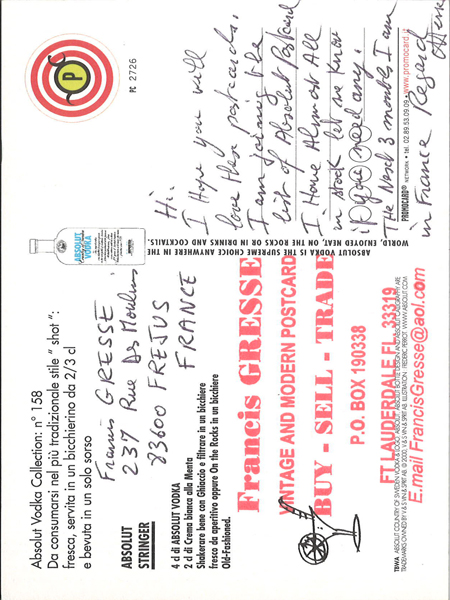 Absolut Vodka Collection: n° 158
Da consumarsi nel più tradizionale stile " shot ":
fresca, servita in un bicchierino da 2/3 cl
e bevuta in un solo sorso
Francis GRESSE
237 Rue Des Moulins
83600 FREJUS
FRANCE
ABSOLUT
STRINGER
4 cl di ABSOLUT VODKA
2 cl di Crema bianca alla Menta
Shakerare bene con Ghiaccio e filtrare in un bicchiere
fresco da aperitivo oppure On the Rocks in un bicchiere
Old-Fashioned.
Francis GRESSE
VINTAGE AND MODERN POSTCARD
BUY - SELL - TRADE
P.O. BOX 190338
FT LAUDERDALE FL 33319
E.mail FrancisGresse@aol.com
TBWA ABSOLUT COUNTRY OF SWEDEN VODKA & LOGO, ABSOLUT, ABSOLUT BOTTLE DESIGN AND ABSOLUT CALLIGRAPHY ARE
TRADEMARKS OWNED BY V & S VIN & SPRIT AB. © 2000 V & S VIN & SPRIT AB. ILLUSTRATION : FREDERIC PERIOT. WWW.ABSOLUT.COM
ABSOLUT VODKA
ABSOLUT VODKA IS THE SUPREME CHOICE ANYWHERE IN THE
WORLD, ENJOYED NEAT, ON THE ROCKS OR IN DRINKS AND COCKTAILS.
P
PC 2726
Hi.
I Hope you will
love these postcards.
I am joining the
list of Absolut Postcard
I Have Almost All
in stock let me know
if you need any.
THe Next 3 months I am
in France Regard
PROMOCARD® NETWORK • tel. 02.89.53.09.09 • www.promocard.it